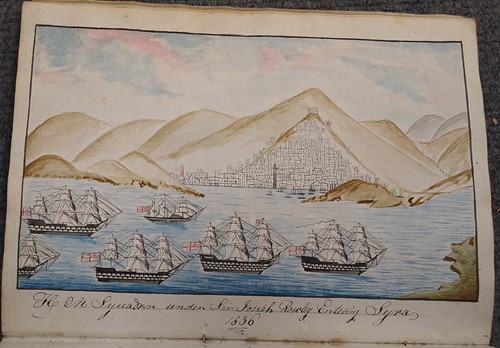 H M Squadron under Sir Josiah Rowly Entering Syra
1836